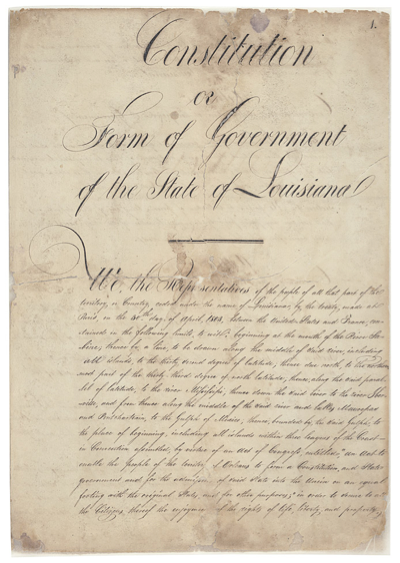 1.
Constitution
or
Form of Government
of the State of Louisiana
We, the Representatives of the people of all that part of the
territory, or Country, ceded under the name of Louisiana, by the treaty, made at
Paris, on the 30th day of April, 1803, between the United States and France, con-
tained in the following limits, to wit: beginning at the mouth of the River Sa-
bine; thence by a line to be drawn along the middle of said river, including
all islands, to the thirty second degree of latitude, thence due north, to the northern
most part of the thirty third degree of north latitude, thence, along the said paral-
lel of latitude, to the river Mississippi, thence down the said river to the river Iber-
ville, and from thence along the middle of the said river and lakes Maurepas
and Pontchartrain, to the Gulph of Mexico, thence, bounded by the said Gulph, to
the place of beginning, including all islands within three leagues of the Coast —
in Convention assembled, by virtue of an act of Congress, entitled, "an Act to
enable the people of the territory of Orleans to form a Constitution, and State
government and for the admission of said State into the Union on an equal
footing with the original States, and for other purposes;" in order to secure to all
the Citizens thereof the enjoyment of the rights of life, liberty, and property,